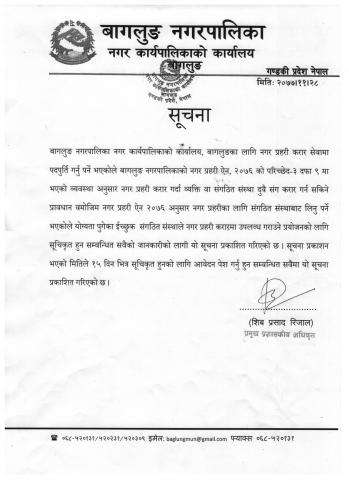 बागलुङ नगरपालिका
नगर कार्यपालिकाको कार्यालय
बागलुङ
गण्डकी प्रदेश नेपाल
मितिः २०७७।११।२८
सूचना
बागलुङ नगरपालिका नगर कार्यपालिकाको कार्यालय, बागलुङका लागि नगर प्रहरी करार सेवामा
पदपुर्ति गर्नु पर्ने भएकोले बागलुङ नगरपालिकाको नगर प्रहरी ऐन, २०७६ को परिच्छेद-३ दफा ९ मा
भएको व्यवस्था अनुसार नगर प्रहरी करार गर्दा व्यक्ति वा संगठित संस्था दुवै संग करार गर्न सकिने
प्रावधान बमोजिम नगर प्रहरी ऐन २०७६ अनुसार नगर प्रहरीका लागि संगठित संस्थाबाट लिनु पर्ने
भएकोले योग्यता पुगेका ईच्छुक संगठित संस्थाले नगर प्रहरी करारमा उपलब्ध गराउने प्रयोजनको लागि
सूचिकृत हुन सम्बन्धित सवैको जानकारीको लागी यो सूचना प्रकाशित गरिएको छ। सूचना प्रकाशन
भएको मितिले १५ दिन भित्र सूचिकृत हुनको लागि आवेदन पेश गर्नु हुन सम्बन्धित सवैमा यो सूचना
प्रकाशित गरिएको छ।
(शिब प्रसाद रिजाल)
प्रमुख प्रशासकीय अधिकृत
☎ ०६८-५२०१३१/५२०२३१/५२०३०९ इमेल: baglungmun@gmail.com फ्याक्स ०६८-५२०१३१